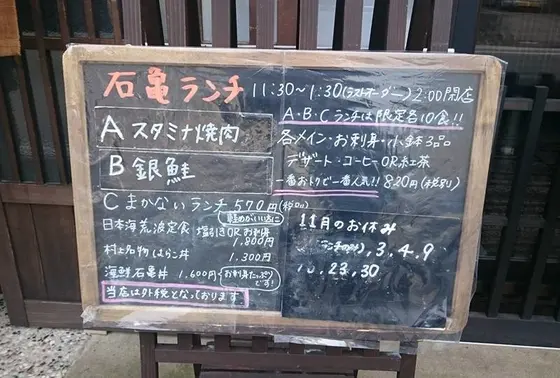 石亀ランチ 11:30～1:30(ラストオーダー)2:00閉店
A・B・Cランチは限定各10食!!
A スタミナ焼肉
各メイン・お刺身・小鉢3品
デザート・コーヒーOR紅茶
B 銀鮭
一番おトクで一番人気!! 820円(税別)
C まかないランチ 570円(税別)
日本海荒波定食 塩引きORお刺身
1,800円
村上名物 はらこ丼 1,300円
海鮮石亀丼 1,600円 お刺身たっぷりです!
当店は外税となっております
11月のお休み
(ランチのみ), 3, 4, 9
23, 30